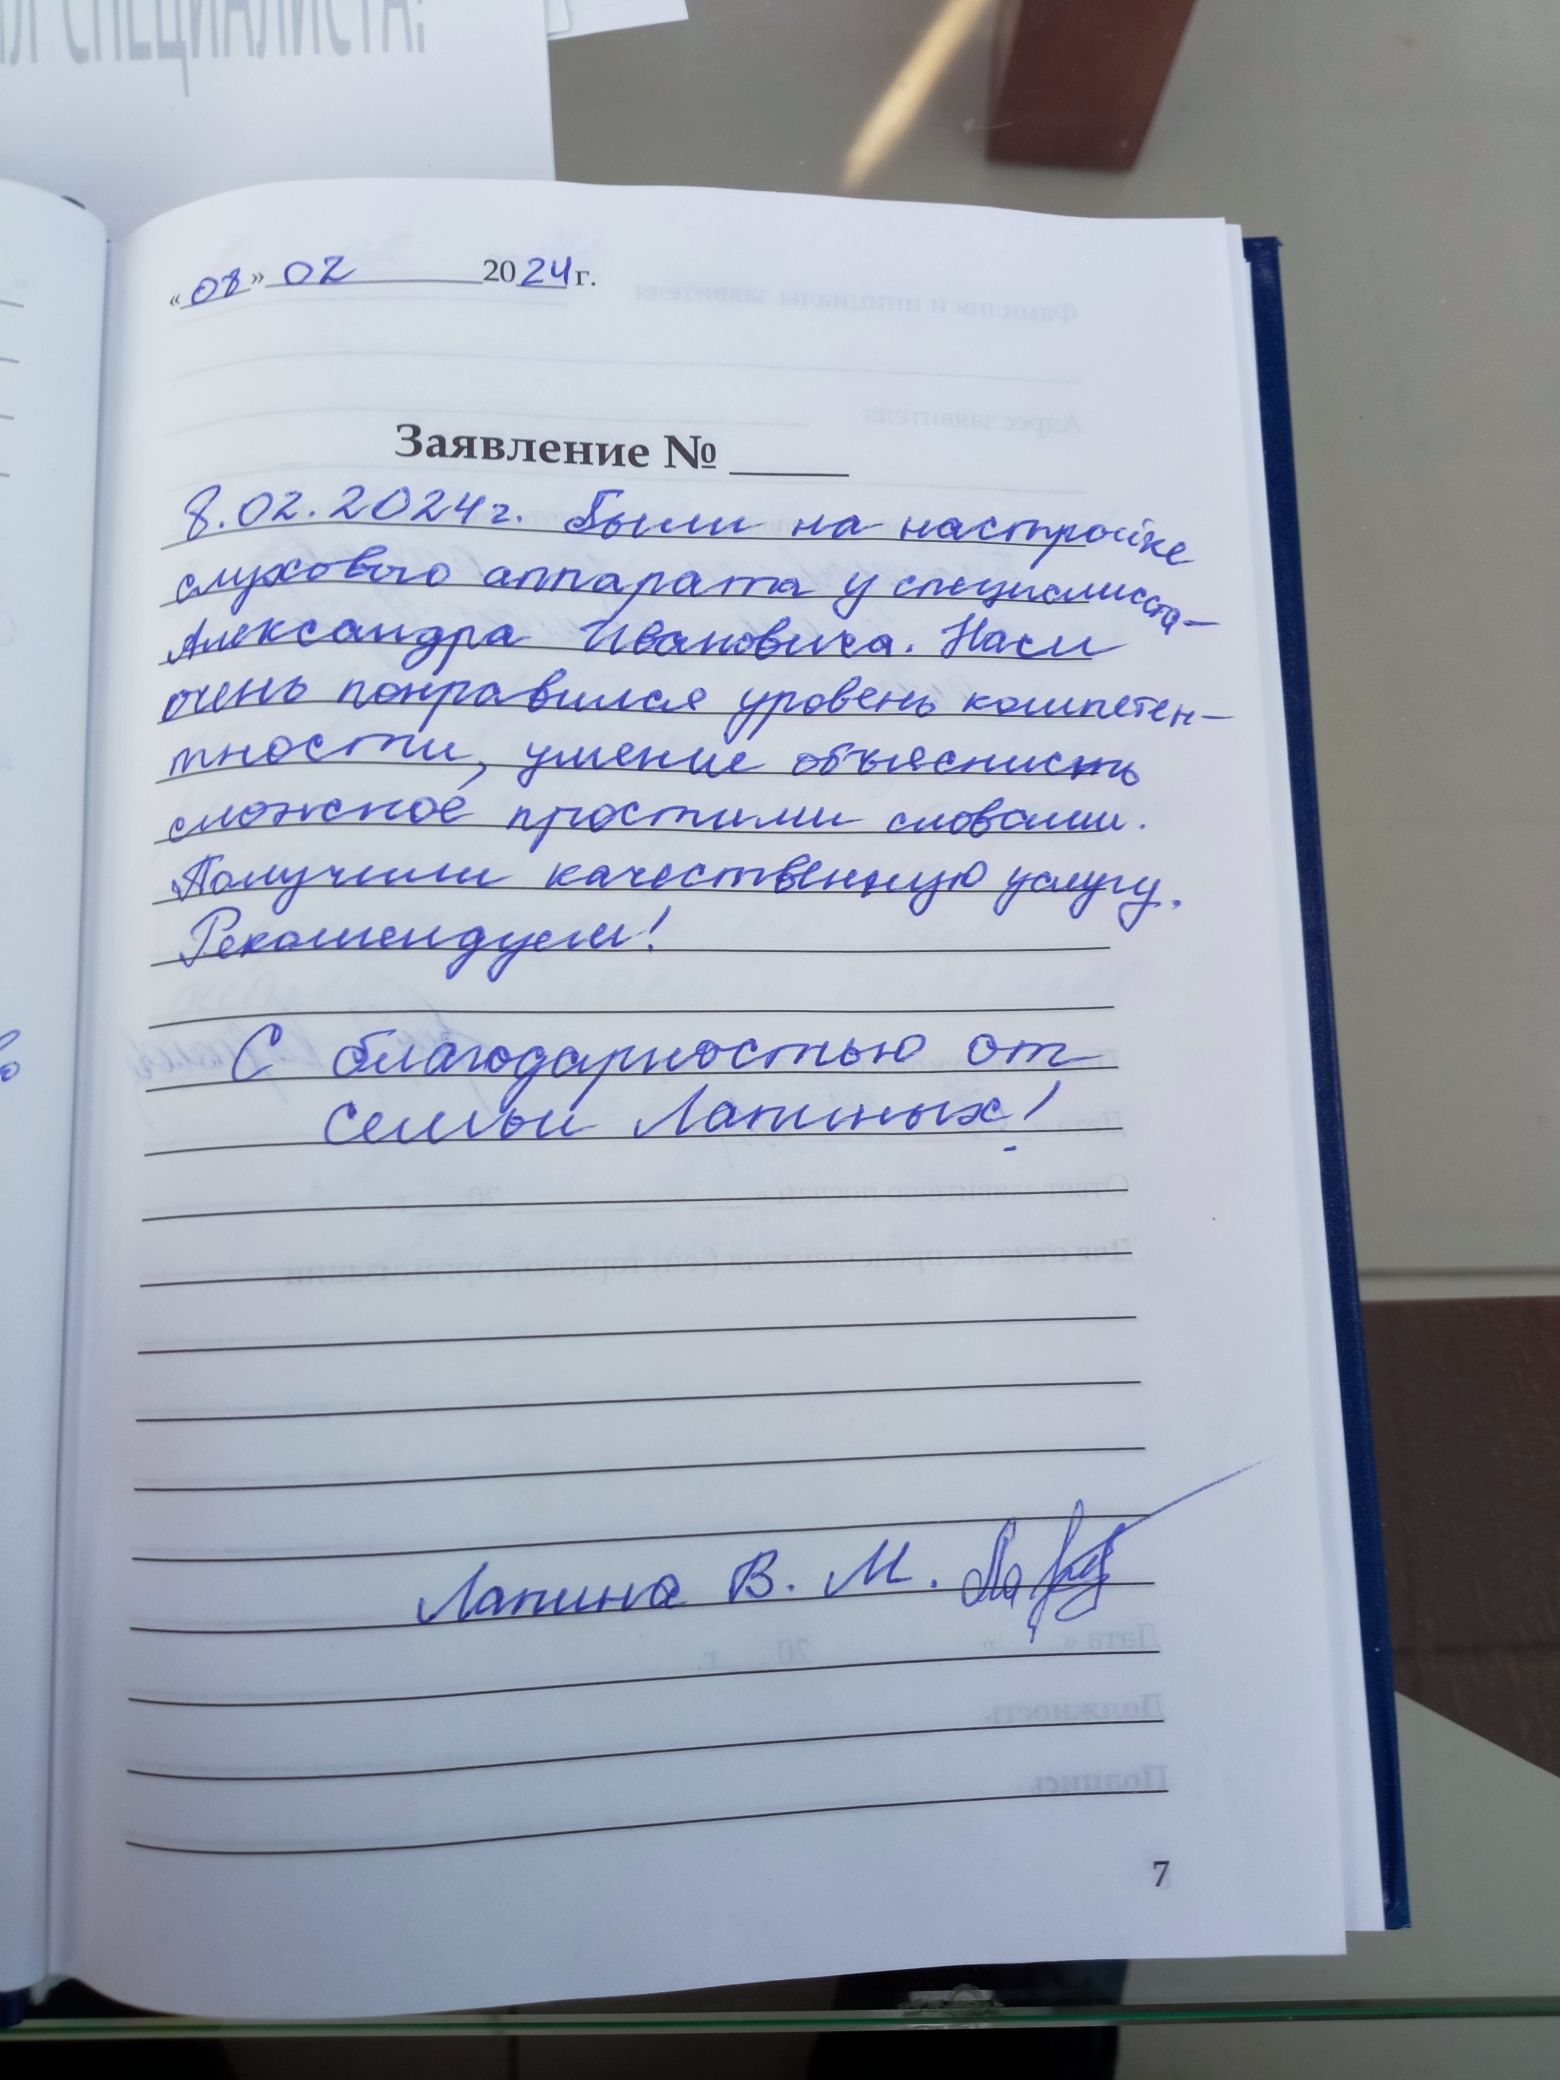 СПЕЦИАЛИСТА!
«08» 02 2024 г.
Заявление № ____
8.02.2024г. Были на настройке
слухового аппарата у специалиста-
Александра Ивановича. Нам
очень понравился уровень компетен-
тности, умение объяснить
сложное простыми словами.
Получили качественную услугу.
Рекомендуем!
С благодарностью от
семьи Лапиных!
Лапина В. М.
7